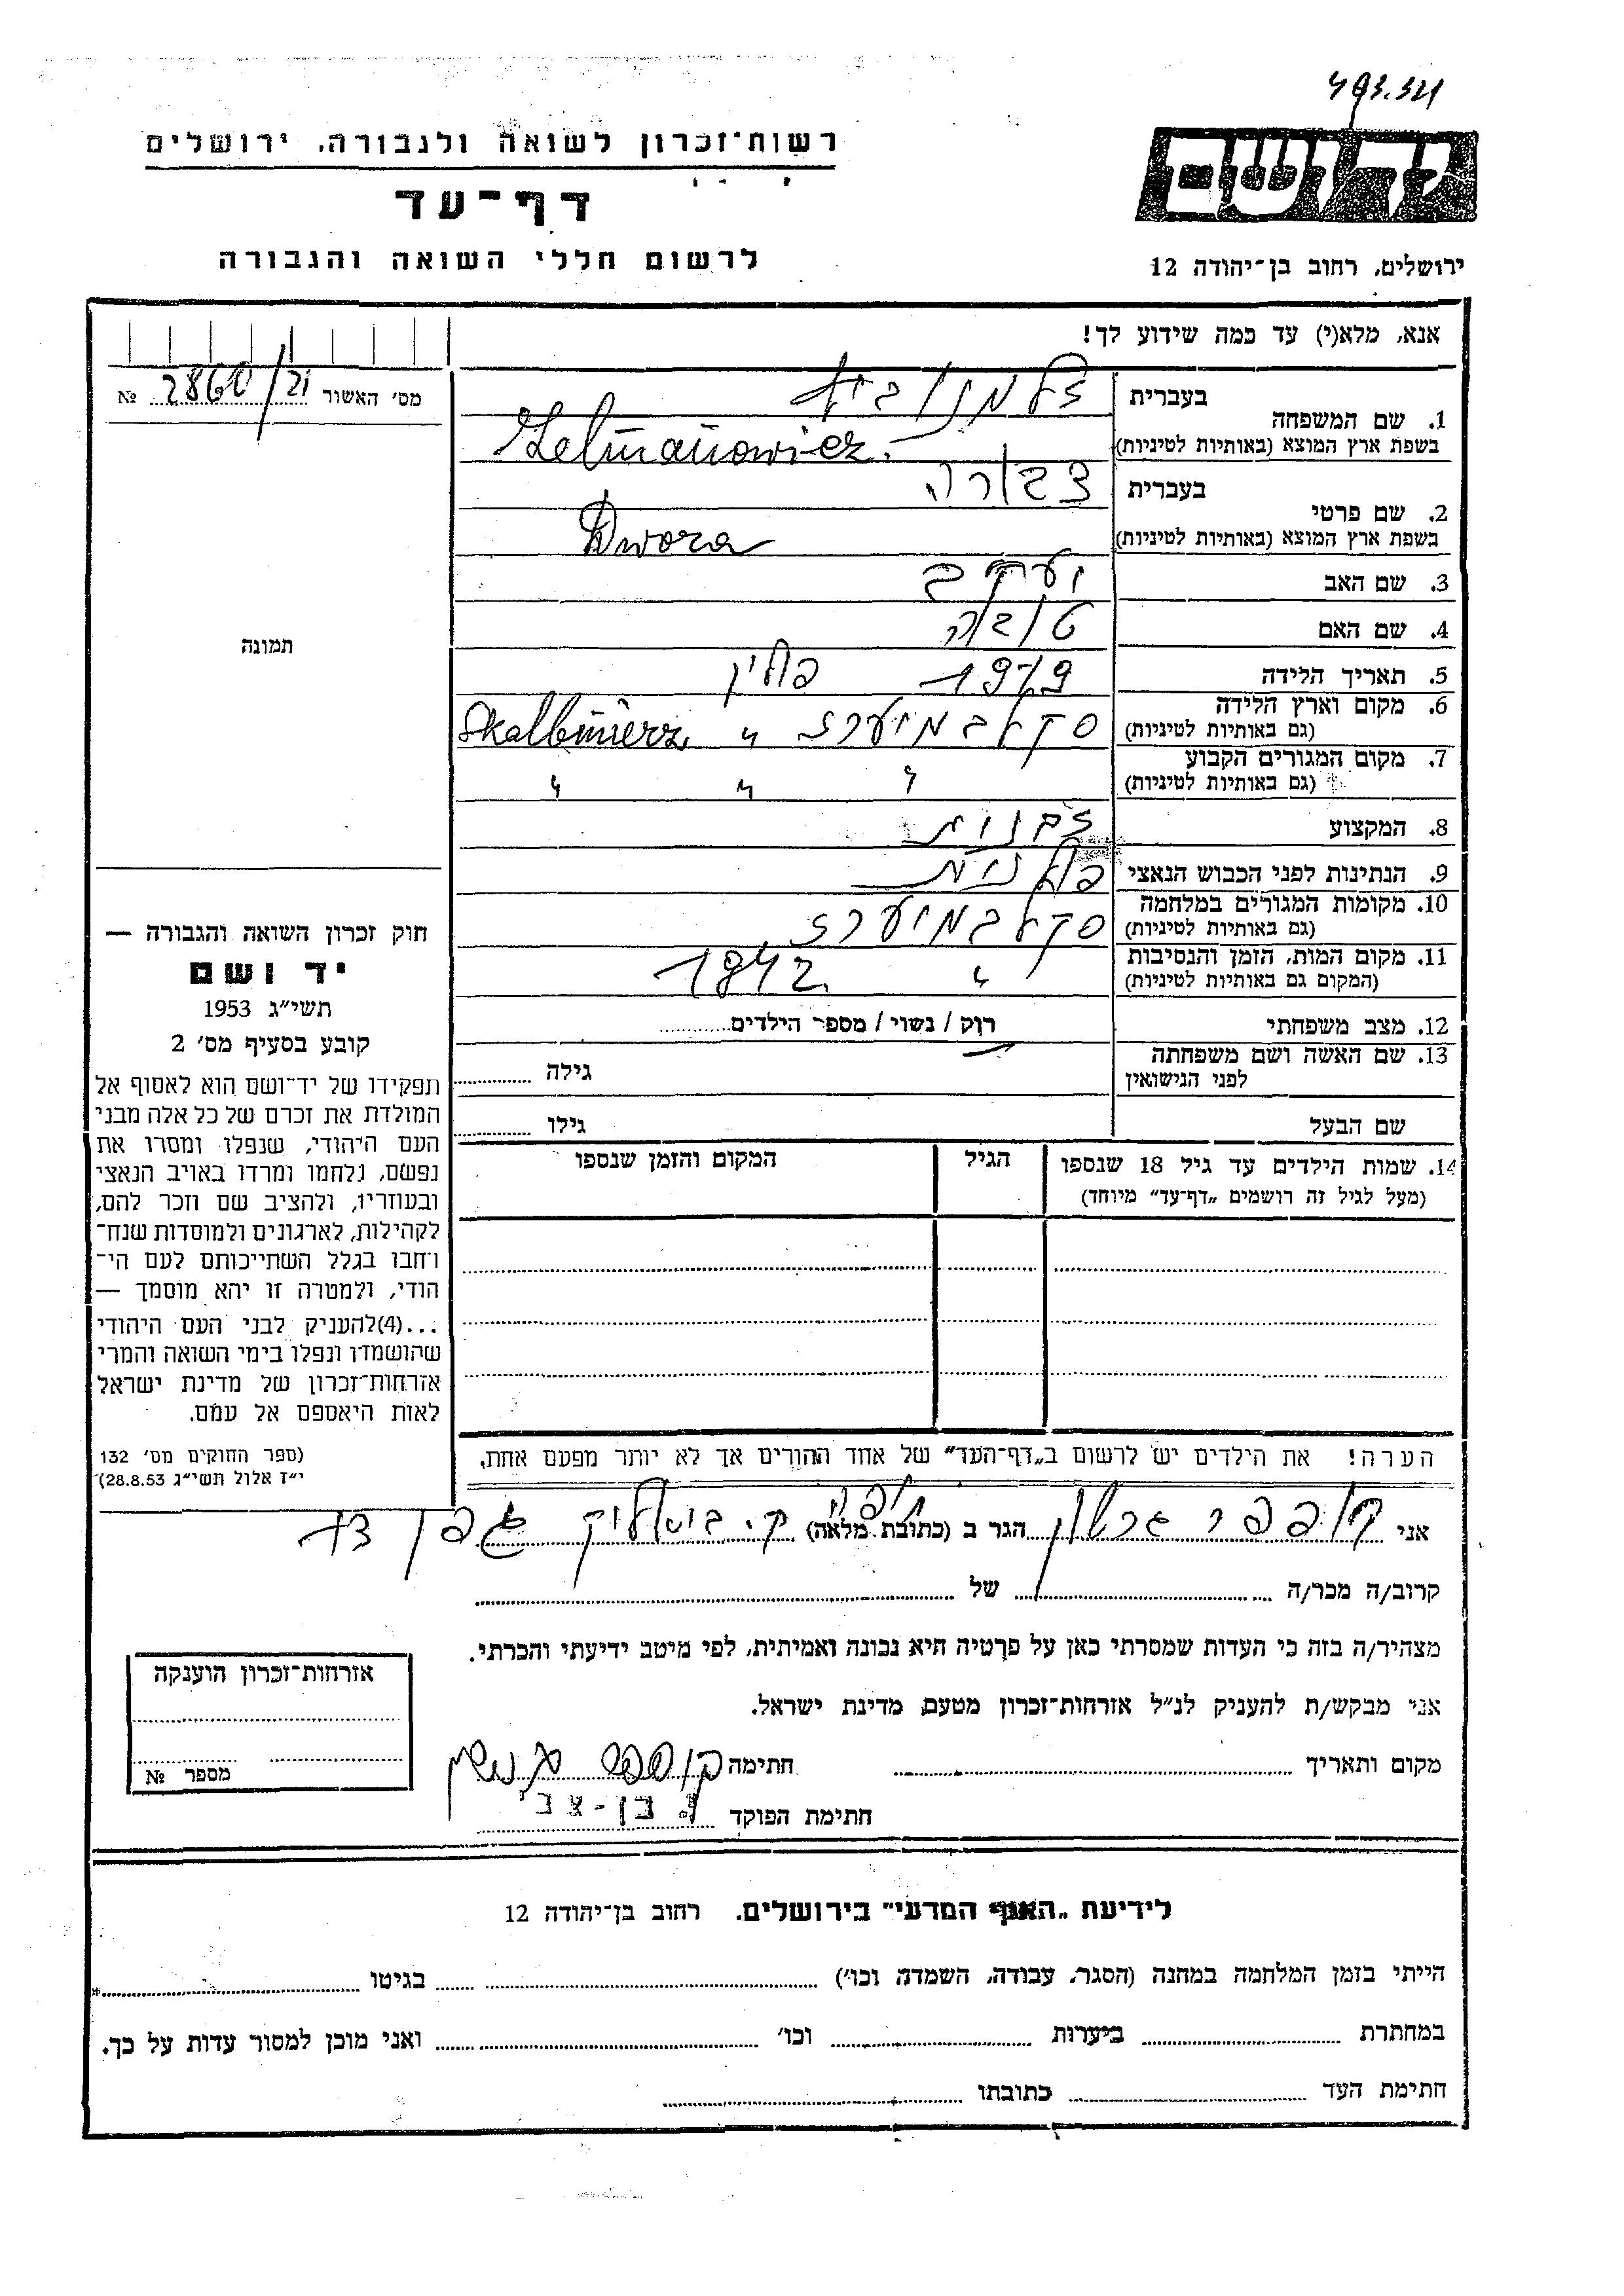 493.321
רשות־זכרון לשואה ולגבורה, ירושלים
דף־עד
לרשום חללי השואה והגבורה
יד ושם
ירושלים, רחוב בן־יהודה 12
אנא, מלא(י) עד כמה שידוע לך!
מס׳ האשור 21/2860 №
תמונה
1. שם המשפחה
בעברית זלמנוביץ
בשפת ארץ המוצא (באותיות לטיניות) Zelmanowicz.
2. שם פרטי
בעברית דבורה
בשפת ארץ המוצא (באותיות לטיניות) Dwora
3. שם האב יעקב
4. שם האם טובה
5. תאריך הלידה 1919 פולין
6. מקום וארץ הלידה סקלבמיערז " Skalbmierz
(גם באותיות לטיניות)
7. מקום המגורים הקבוע " " "
(גם באותיות לטיניות)
8. המקצוע זבנית
9. הנתינות לפני הכבוש הנאצי פולנית
10. מקומות המגורים במלחמה סקלבמיערז
(גם באותיות לטיניות)
11. מקום המות, הזמן והנסיבות " 1942
(המקום גם באותיות לטיניות)
12. מצב משפחתי רווק / נשוי / מספר הילדים
13. שם האשה ושם משפחתה גילה
לפני הנישואין
שם הבעל גילו
14. שמות הילדים עד גיל 18 שנספו הגיל המקום והזמן שנספו
(מעל לגיל זה רושמים „דף־עד״ מיוחד)
הערה! את הילדים יש לרשום ב„דף־העד״ של אחד ההורים אך לא יותר מפעם אחת.
חוק זכרון השואה והגבורה —
יד ושם
תשי״ג 1953
קובע בסעיף מס׳ 2
תפקידו של יד־ושם הוא לאסוף אל
המולדת את זכרם של כל אלה מבני
העם היהודי, שנפלו ומסרו את
נפשם, נלחמו ומרדו באויב הנאצי
ובעוזריו, ולהציב שם וזכר להם,
לקהילות, לארגונים ולמוסדות שנח־
רחבו בגלל השתייכותם לעם הי־
הודי, ולמטרה זו יהא מוסמך —
...(4)להעניק לבני העם היהודי
שהושמדו ונפלו בימי השואה והמרי
אזרחות־זכרון של מדינת ישראל
לאות היאספם אל עמם.
(ספר החוקים מס׳ 132
י״ז אלול תשי״ג 28.8.53)
אני קופפר גרשון הגר ב (כתובת מלאה) חיפה ק. ביאליק גפן
קרוב/ה מכר/ה של
מצהיר/ה בזה כי העדות שמסרתי כאן על פרטיה היא נכונה ואמיתית, לפי מיטב ידיעתי והכרתי.
אני מבקש/ת להעניק לנ״ל אזרחות־זכרון מטעם מדינת ישראל.
מקום ותאריך חתימה קופפר גרשון
חתימת הפוקד י. בן-צבי
אזרחות־זכרון הוענקה
מספר №
לידיעת „האגף המדעי״ בירושלים. רחוב בן־יהודה 12
הייתי בזמן המלחמה במחנה (הסגר, עבודה, השמדה וכו׳) בגיטו
במחתרת ביערות וכו׳ ואני מוכן למסור עדות על כך.
חתימת העד כתובתו